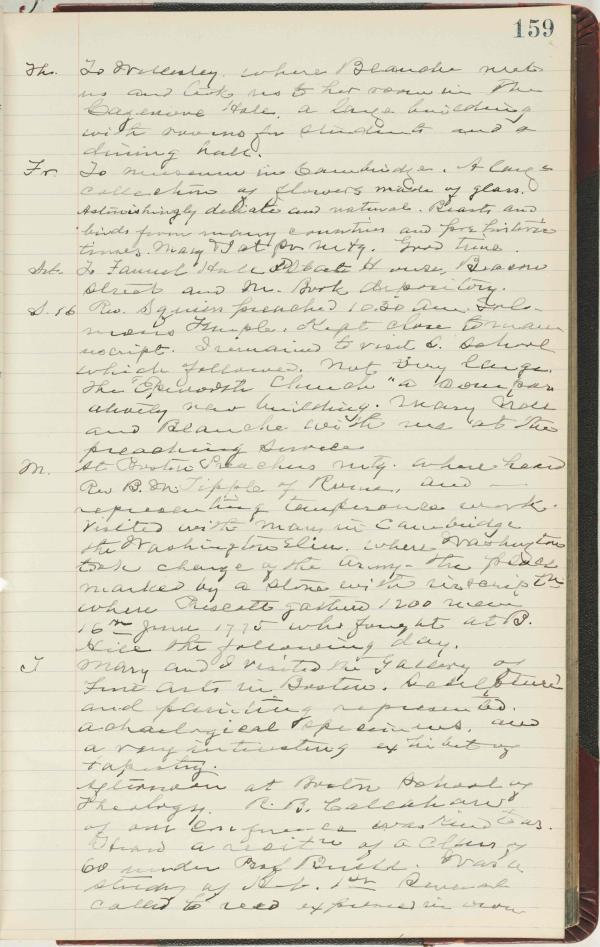 159
Th. To Wellesley, where Blanche met
us and took us to her room in The
Cazenove Hall, a large building
with rooms for students and a
dining hall.
Fr. To museum in Cambridge. A large
collection of flowers made of glass.
Astonishingly delicate and natural. Beasts and
birds from many countries and pre historic
times. Mary & I at pr. mtg. Good time.
Sat. To Faneuil Hall State House, Beacon
Street and M. Book depository.
S. 16 Rev. Squier preached 10.30 am. Solo-
mon's Temple. Kept close to manu
script. I remained to visit S. School
which followed. Not very large.
The "Epworth Church" a compar
atively new building. Mary Nell
and Blanche with me at the
preaching service
M. At Boston Preachers mtg. where heard
Rev B. M. Tipple of Rome, and —
representing temperance work.
Visited with Mary in Cambridge
the Washington Elm. where Washington
took charge of the army - the place
marked by a stone with inscription
where Prescott gathered 1200 men
16th June 1775 who fought at B.
Hill the following day.
T Mary and I visited the Gallery of
Fine Arts in Boston. Sculpture
and painting represented.
achaelogical specimens, and
a very interesting exhibit of
tapestry.
Afternoon at Boston School of
Theology. R. B.
of our Conference was kind to us.
Heard a recitn of a Class of
60 under Prof. Was a
study of Heb. 1st Several
called to read expressed in own